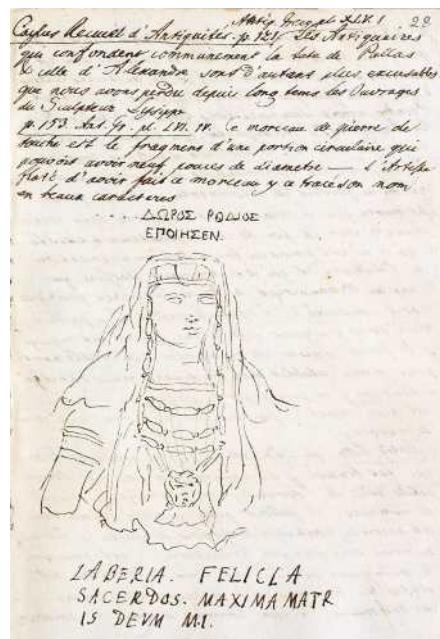 Antiq. Grecq. pl. XLV. 1 29
Caylus Recueil d'Antiquités. p. 121. Les Antiquaires
qui confondent communement la tete de Pallas
& celle d'Alexandre sont d'autant plus excusables
que nous avons perdu depuis longtems les Ouvrages
du Sculpteur Lysippe
p. 153. Ant. Gr. pl. LVI. IV. Ce morceau de pierre de
touche est le fragment d'une portion circulaire qui
pouvoit avoir neuf pouces de diametre — l'Artiste
flaté d'avoir fait ce morceau y a tracé son nom
en beaux caracteres
.... ΔΩΡΟΣ ΡΩΔΙΟΣ
ΕΠΟΙΗΣΕΝ.
LABERIA. FELICLA
SACERDOS. MAXIMA MATR
IS DEVM M.I.